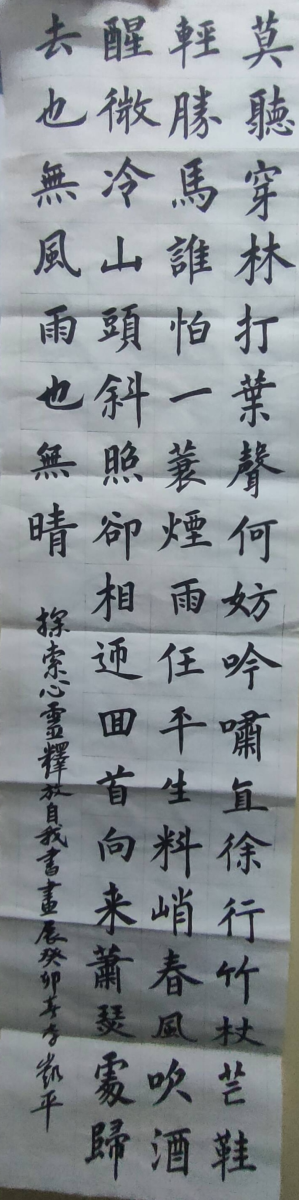 莫聽穿林打葉聲何妨吟嘯且徐行竹杖芒鞋
輕勝馬誰怕一蓑煙雨任平生料峭春風吹酒
醒微冷山頭斜照卻相迎囬首向来蕭瑟處歸
去也無風雨也無晴
探索心靈釋放自我書畫展癸卯春李凱平